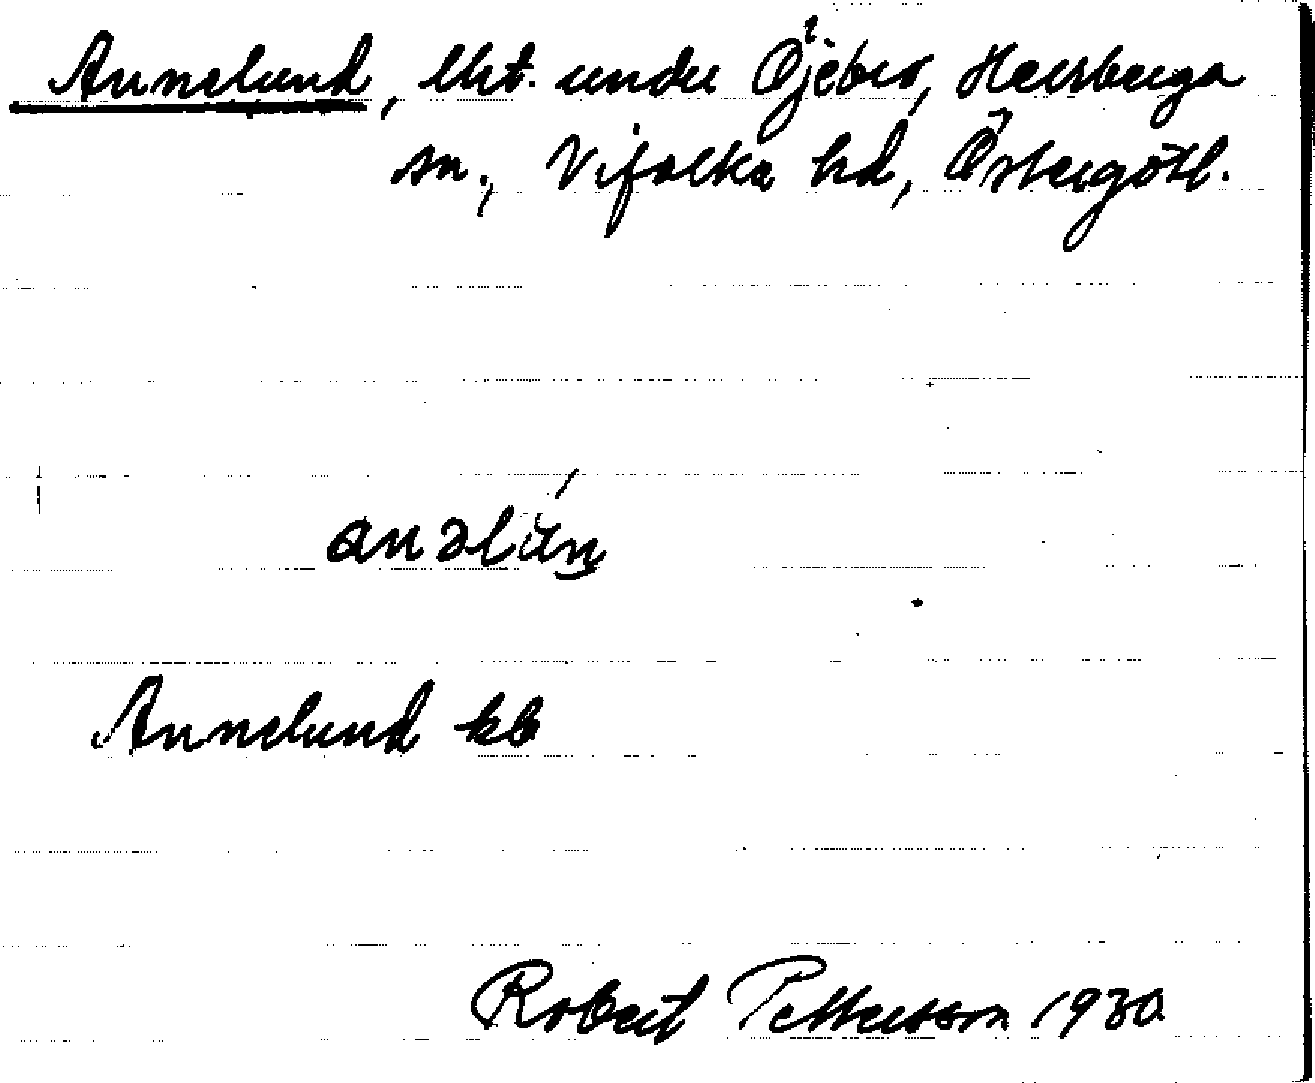 Annelund, lht. under Öjebro, Herrberga
sn., Vifolka hd, Östergötl.
anəlún
Annelund kb
Robert Pettersson 1930